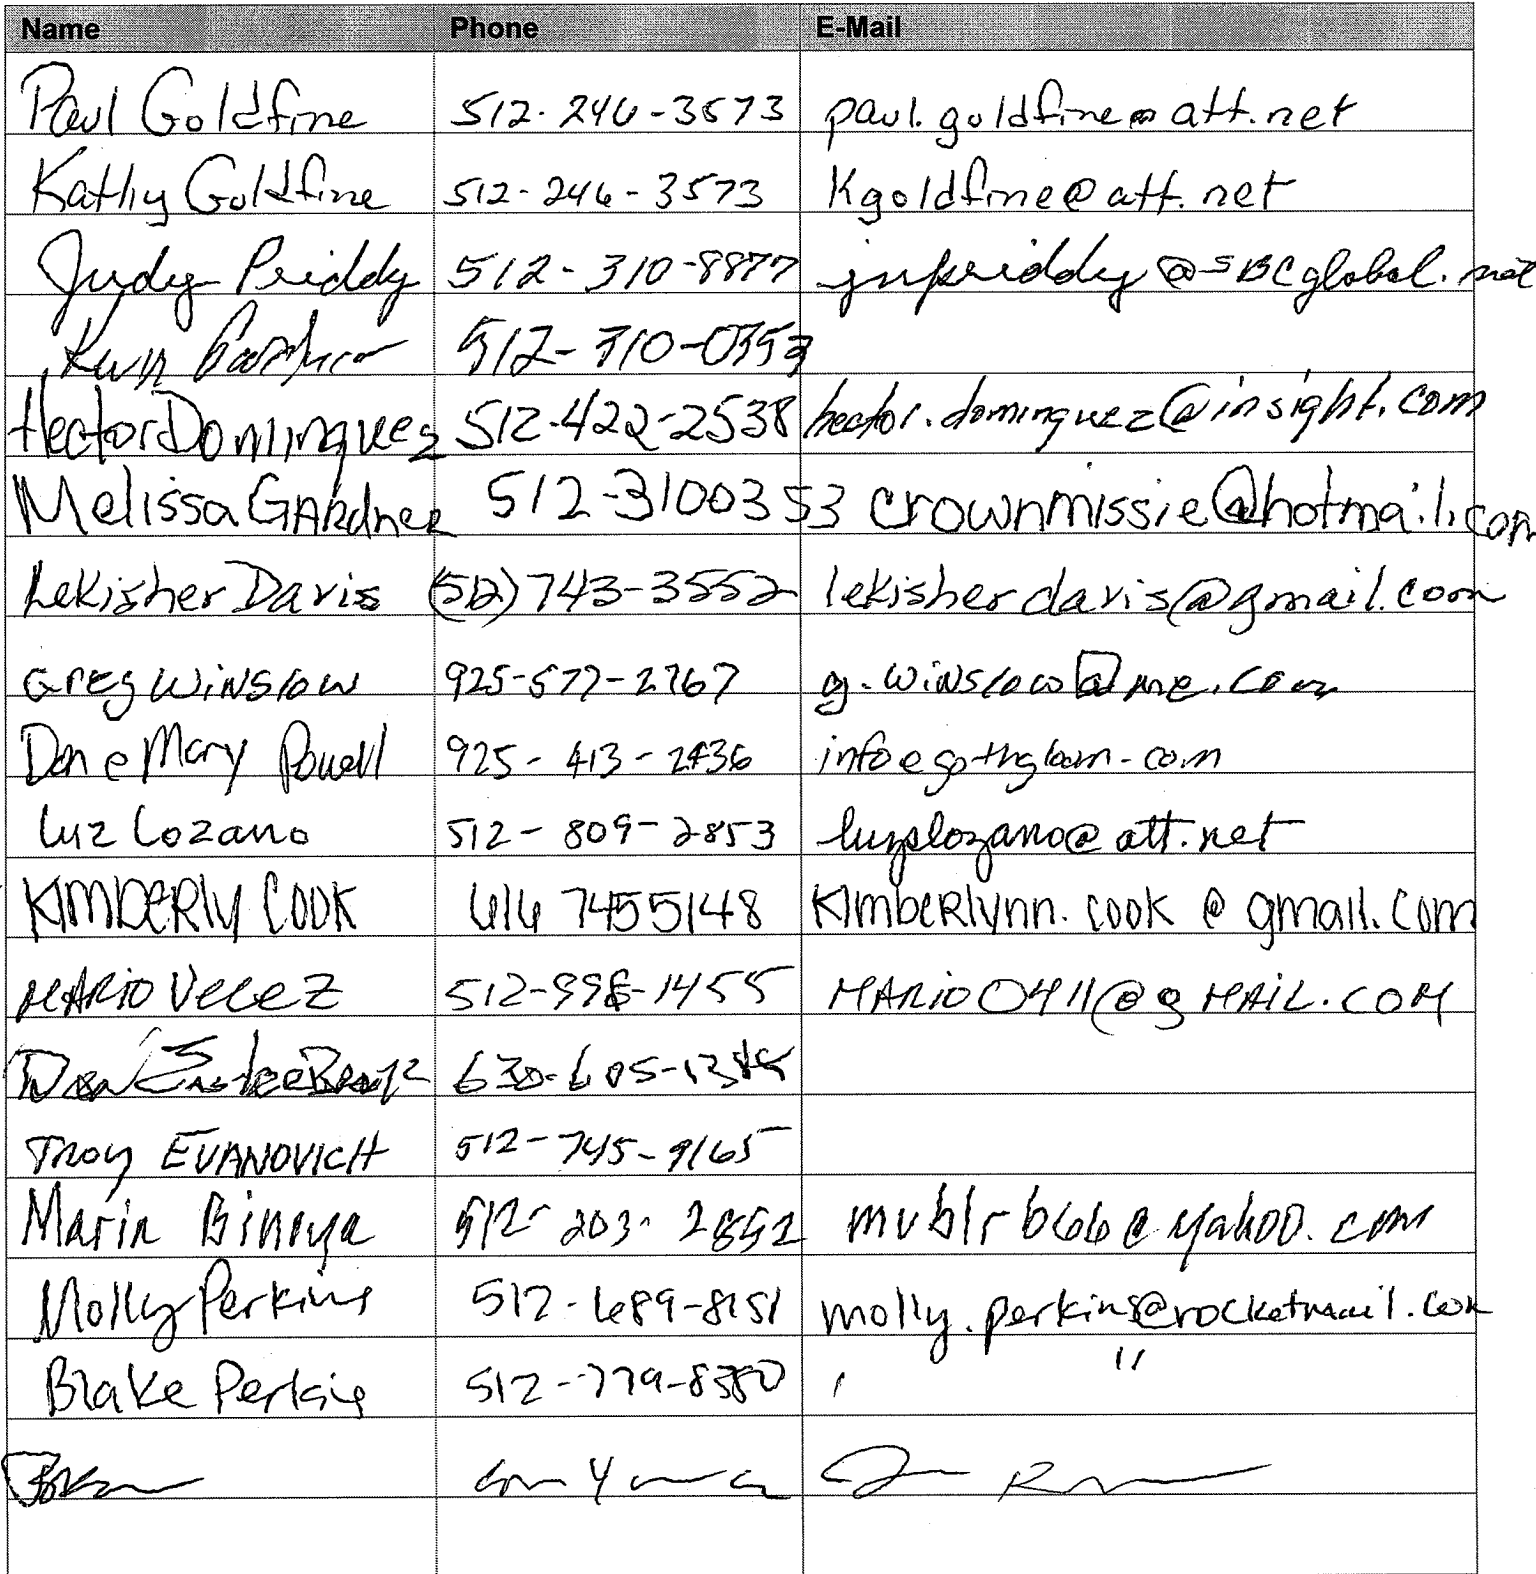 Name Phone E-Mail
Paul Goldfine 512-246-3573 paul.goldfine@att.net
Kathy Goldfine 512-246-3573 Kgoldfine@att.net
Judy Priddy 512-310-8877 jnpriddy@SBCglobal.net
Kevin 512-310-0353
Hector Dominguez 512-422-2538 hector.dominguez@insight.com
Melissa GARdneR 512-3100353 crownmissie@hotmail.com
Lekisher Davis (512)743-3552 lekisherdavis@gmail.com
Greg Winslow 925-577-2767 g.winslow@me.com
Mary Powell 925-413-2436
Luz Lozano 512-809-2853 luzslozano@att.net
KIMBERLY COOK 616 7455148 KImbeRlynn.cook@gmail.com
MARIO VELEZ 512-998-1455 MARIO0411@gMAIL.COM
630-605-
TROY EVANOVICH 512-745-9165
Maria Binoya 512-203-2852 mvblrb66@yahoo.com
Molly Perkins 512-689-8151 molly.perkins@rocketmail.com
Blake Perkins 512-779-8380 "